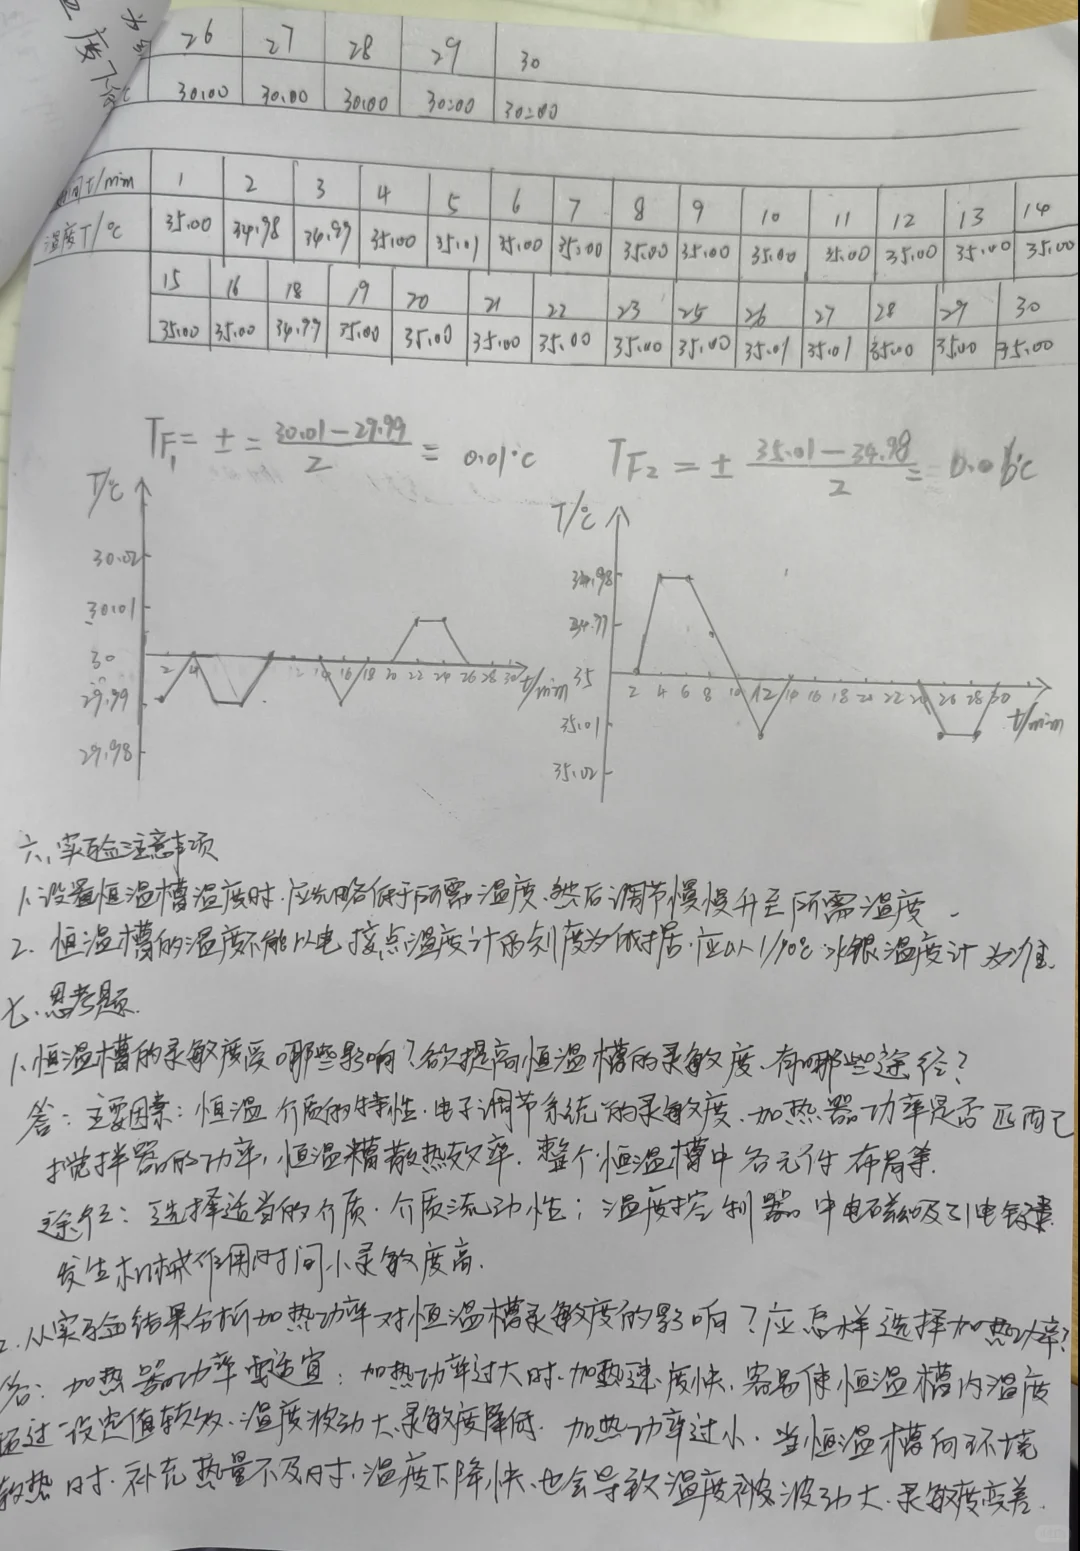 为
度下
26 27 28 29 30
30.00 30.00 30.00 30.00 30.00
间t/min 1 2 3 4 5 6 7 8 9 10 11 12 13 14
温度T/℃ 35.00 34.98 34.99 35.00 35.01 35.00 35.00 35.00 35.00 35.00 35.00 35.00 35.00 35.00
15 16 18 19 20 21 22 23 25 26 27 28 29 30
35.00 35.00 34.99 35.00 35.00 35.00 35.00 35.00 35.00 35.01 35.01 35.00 35.00 35.00
TF₁= ± = (30.01-29.99)/2 = 0.01℃
TF₂ = ± (35.01-34.98)/2 =
T/℃
30.02
30.01
30
29.99
29.98
2 4 12 14 16 18 20 22 24 26 28 30 t/min
T/℃
34.98
34.99
35
35.01
35.02
2 4 6 8 10 12 14 16 18 20 22 24 26 28 30 t/min
六、实验注意事项
1、设置恒温槽温度时,应先略低于所需温度,然后调节慢慢升至所需温度.
2. 恒温槽的温度不能以电接点温度计的刻度为依据,应以1/10℃水银温度计为准.
七、思考题.
1、恒温槽的灵敏度受哪些影响?欲提高恒温槽的灵敏度、有哪些途径?
答:主要因素:恒温介质的特性、电子调节系统的灵敏度、加热器功率是否匹配
搅拌器的功率,恒温槽散热效率、整个恒温槽中各元件布局等.
途径:选择适当的介质、介质流动性;温度控制器中电磁吸引电键
发生机械作用时间小灵敏度高.
2.从实验结果分析加热功率对恒温槽灵敏度的影响?应怎样选择加热功率?
答:加热器功率要适宜:加热功率过大时、加热速度快、容易使恒温槽内温度
超过设定值较多、温度波动大灵敏度降低. 加热功率过小、当恒温槽向环境
散热时、补充热量不及时、温度下降快、也会导致温度波动大、灵敏度变差.